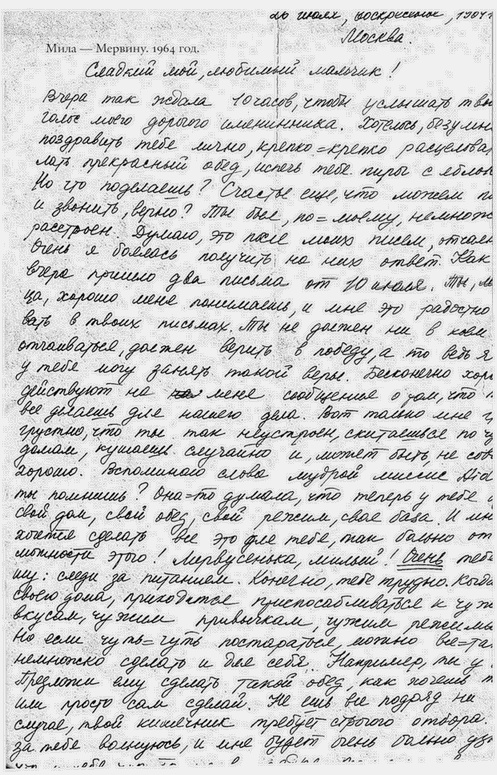 26 июля, воскресенье, 1964
Москва.
Мила — Мервину. 1964 год.
Сладкий мой, любимый мальчик!
Вчера так ждала 10 часов, чтобы услышать
голос моего дорогого именинника. Хотелось, безумн
поздравить тебя лично, крепко=крепко расцелова
лать прекрасный обед, испечь тебе пирог с яблок
Но что поделаешь? Счастье еще, что можем п
и звонить, верно? Ты был, по=моему, немножк
расстроен. Думаю, это после моих писем, отчаен
Очень я боялась получить на них ответ. Как
вчера пришло два письма от 10 июля. Ты, м
ца, хорошо меня понимаешь, и мне это радостно
вать в твоих письмах. Ты не должен ни в коем
отчаиваться, должен верить в победу, а то ведь я
у тебя могу занять такой веры. Бесконечно хоро
действуют на меня сообщения о том, что
все делаешь для нашего дела. Вот только мне
грустно, что ты так неустроен, скитаешься по ч
домам, кушаешь случайно и, может быть, не сов
хорошо. Вспоминаю слова мудрой миссис
ты помнишь? Она=то думала, что теперь у тебя
свой дом, свой обед, свой режим, своя база. И мн
хочется сделать все это для тебя, так больно от
можности этого! Мервусенька, милый! Очень тебя
шу: следи за питанием. Конечно, тебе трудно. Когда
своего дома, приходится приспосабливаться к чуж
вкусам, чужим привычкам, чужим режимам
Но если чуть=чуть постараться, можно все=та
немножко сделать и для себя. Например, ты у
Предложи ему сделать такой обед, как хочешь т
или просто сам сделай. Не ешь все подряд ни
случае, твой кишечник требует строгого отбора.
за тебя волнуюсь, и мне будет очень больно